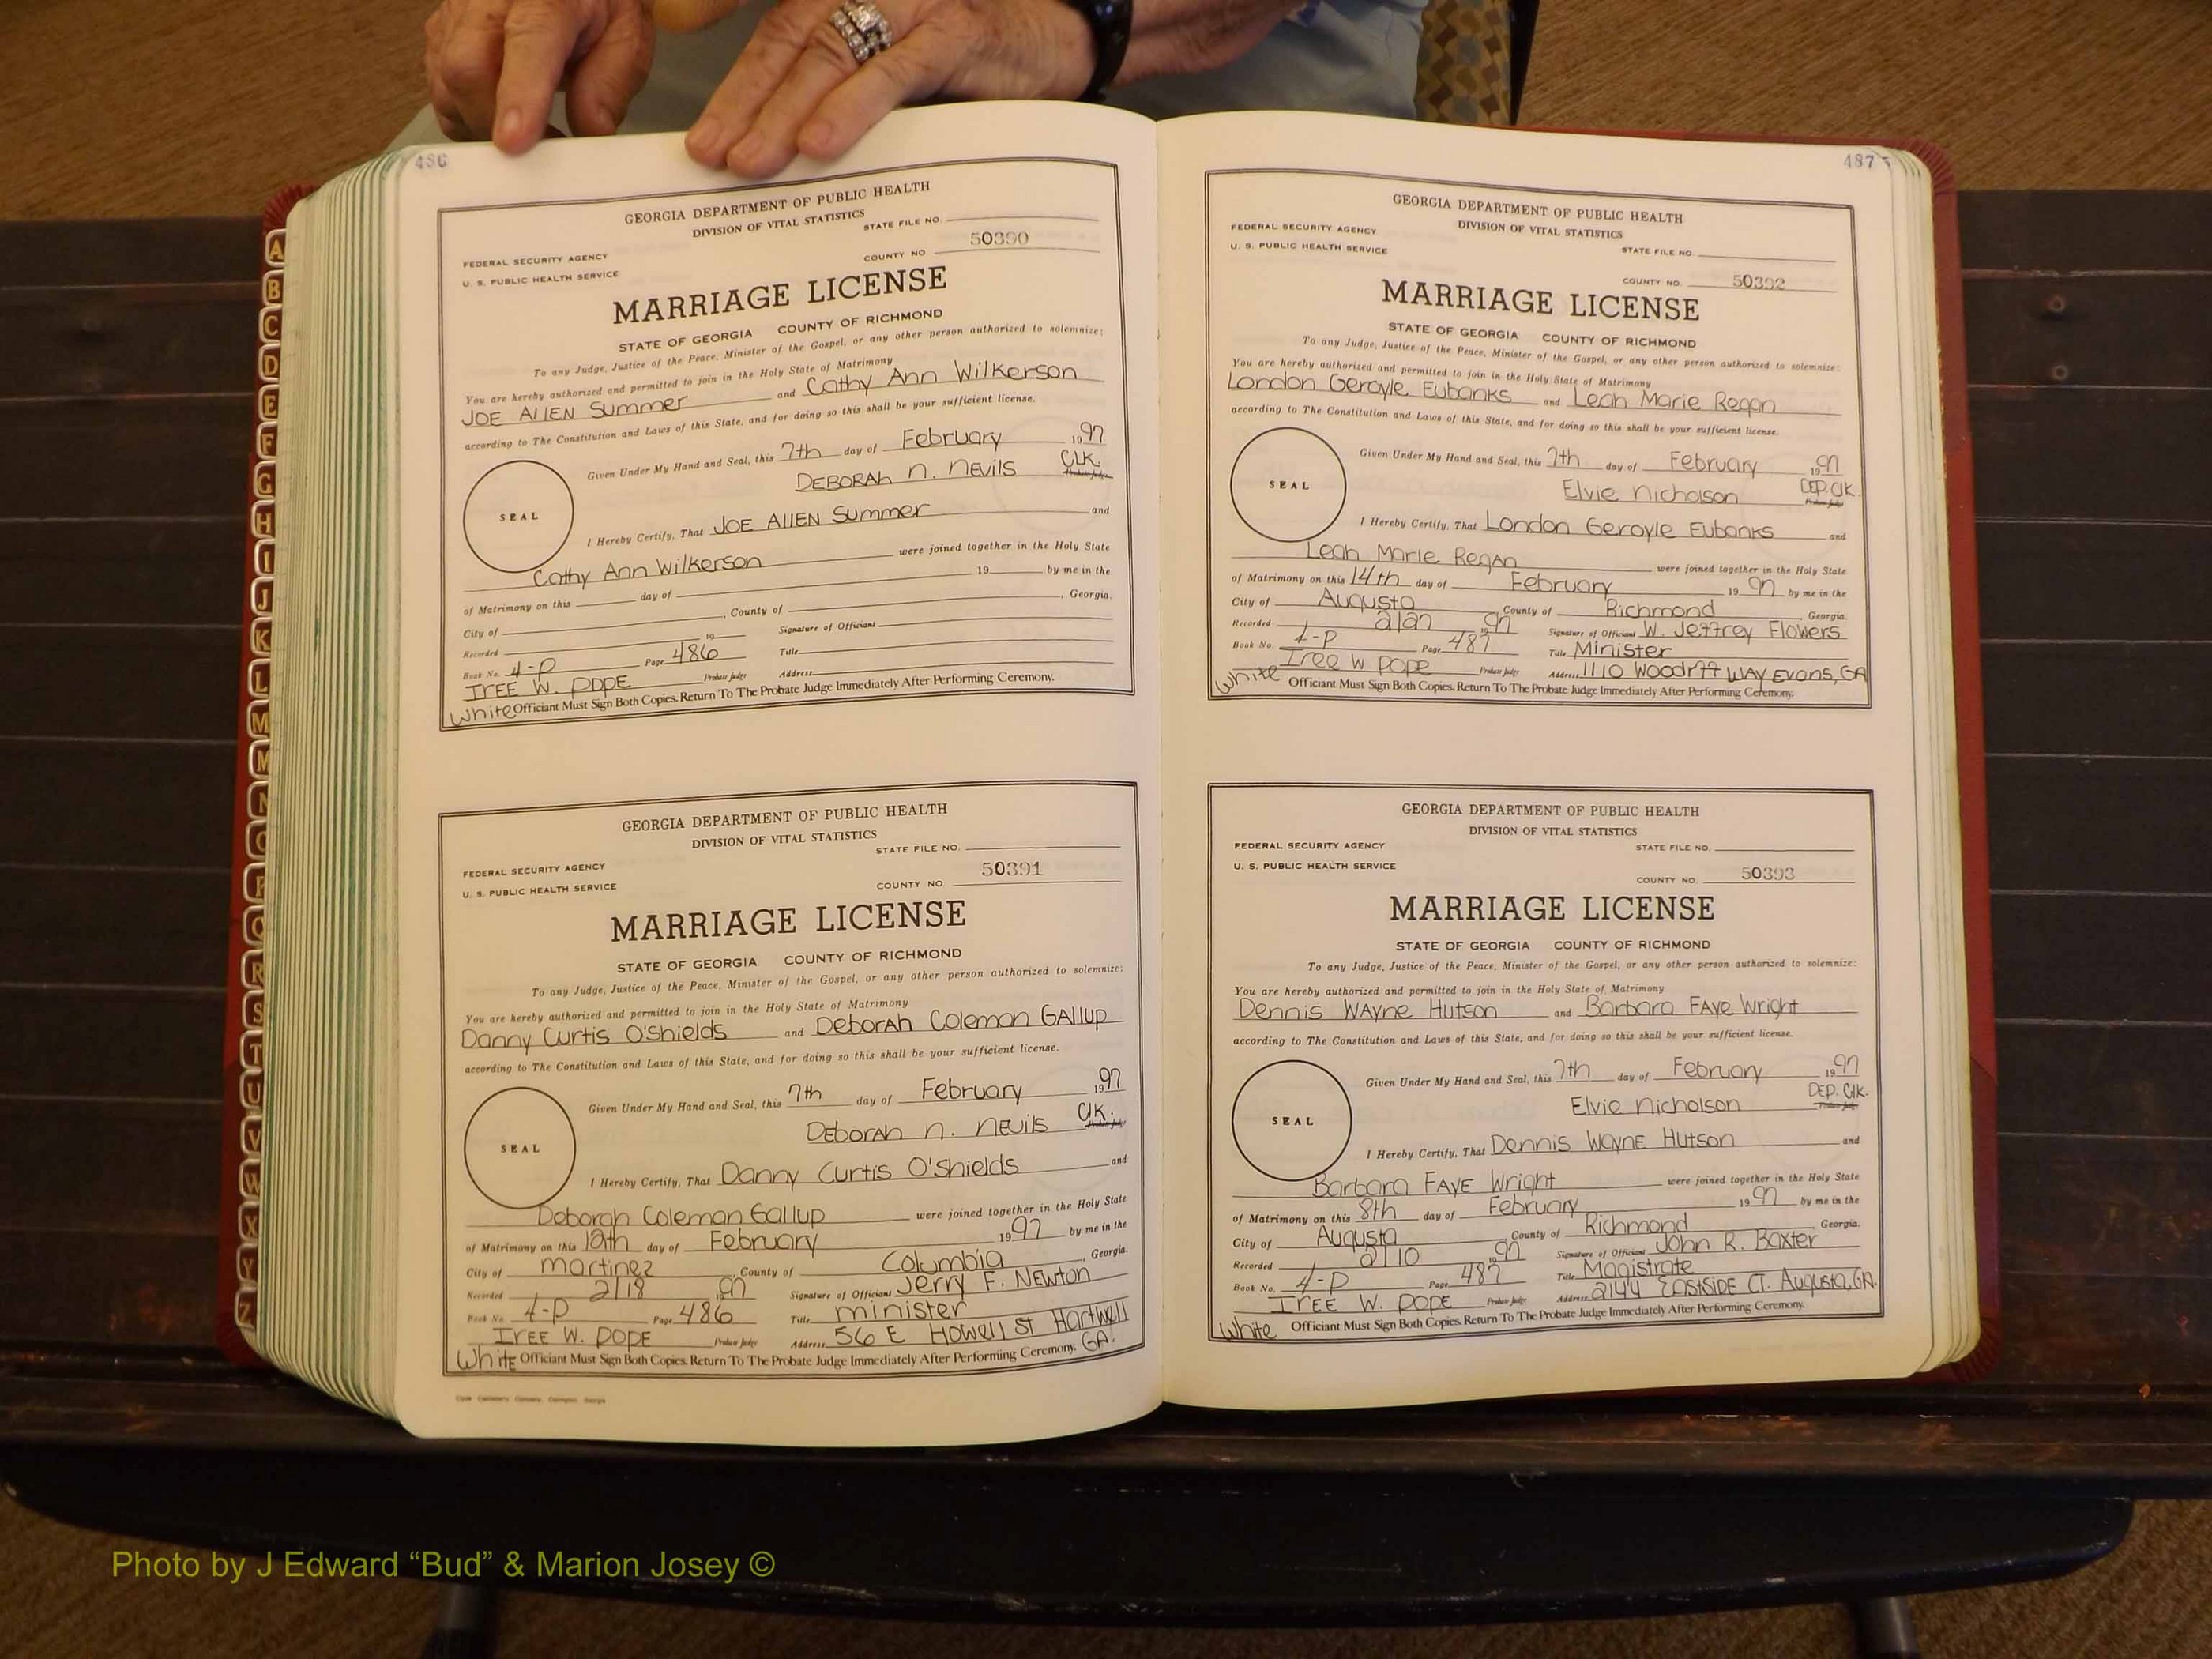 486
GEORGIA DEPARTMENT OF PUBLIC HEALTH
DIVISION OF VITAL STATISTICS
STATE FILE NO.
FEDERAL SECURITY AGENCY
U. S. PUBLIC HEALTH SERVICE
COUNTY NO. 50390
MARRIAGE LICENSE
STATE OF GEORGIA COUNTY OF RICHMOND
To any Judge, Justice of the Peace, Minister of the Gospel, or any other person authorized to solemnize:
You are hereby authorized and permitted to join in the Holy State of Matrimony
JOE AllEN Summer and Cathy Ann Wilkerson
according to The Constitution and Laws of this State, and for doing so this shall be your sufficient license.
Given Under My Hand and Seal, this 7th day of February 1997
DEBORAh n. nEVilS Clk. Probate Judge
SEAL
I Hereby Certify, That JOE AllEN Summer and
Cathy Ann Wilkerson were joined together in the Holy State
of Matrimony on this day of 19 by me in the
City of , County of , Georgia.
Recorded 19 Signature of Officiant
Book No. 4-P Page 486 Title
IrEE W. POPE Probate Judge Address
White Officiant Must Sign Both Copies. Return To The Probate Judge Immediately After Performing Ceremony.
GEORGIA DEPARTMENT OF PUBLIC HEALTH
DIVISION OF VITAL STATISTICS
STATE FILE NO.
FEDERAL SECURITY AGENCY
U. S. PUBLIC HEALTH SERVICE
COUNTY NO 50391
MARRIAGE LICENSE
STATE OF GEORGIA COUNTY OF RICHMOND
To any Judge, Justice of the Peace, Minister of the Gospel, or any other person authorized to solemnize:
You are hereby authorized and permitted to join in the Holy State of Matrimony
Danny Curtis O'Shields and Deborah Coleman GAllup
according to The Constitution and Laws of this State, and for doing so this shall be your sufficient license.
Given Under My Hand and Seal, this 7th day of February 1997
DEborAh n. nEvils Clk. Probate Judge
SEAL
I Hereby Certify, That Danny Curtis O'Shields and
Deborah Coleman Gallup were joined together in the Holy State
of Matrimony on this 12th day of February 1997 by me in the
City of martinez , County of Columbia , Georgia.
Recorded 2/18 1997 Signature of Officiant Jerry F. NEwton
Book No. 4-P Page 486 Title minister
IrEE W. POPE Probate Judge Address 56 E Howell St Hartwell GA.
White Officiant Must Sign Both Copies. Return To The Probate Judge Immediately After Performing Ceremony.
487
GEORGIA DEPARTMENT OF PUBLIC HEALTH
DIVISION OF VITAL STATISTICS
FEDERAL SECURITY AGENCY
U. S. PUBLIC HEALTH SERVICE
STATE FILE NO.
COUNTY NO. 50392
MARRIAGE LICENSE
STATE OF GEORGIA COUNTY OF RICHMOND
To any Judge, Justice of the Peace, Minister of the Gospel, or any other person authorized to solemnize:
You are hereby authorized and permitted to join in the Holy State of Matrimony
London Geroyle Eubanks and Leah Marie Regan
according to The Constitution and Laws of this State, and for doing so this shall be your sufficient license.
Given Under My Hand and Seal, this 7th day of February 1997
Elvie Nicholson DEP. Clk. Probate Judge
SEAL
I Hereby Certify, That London Geroyle Eubanks and
Leah Marie Regan were joined together in the Holy State
of Matrimony on this 14th day of February 1997 by me in the
City of Augusta , County of Richmond Georgia.
Recorded 2/27 1997 Signature of Officiant W. Jeffrey Flowers
Book No. 4-P Page 487 Title Minister
Iree W Pope Probate Judge Address 1110 WAY Evans, GA
White Officiant Must Sign Both Copies. Return To The Probate Judge Immediately After Performing Ceremony.
GEORGIA DEPARTMENT OF PUBLIC HEALTH
DIVISION OF VITAL STATISTICS
FEDERAL SECURITY AGENCY
STATE FILE NO.
U. S. PUBLIC HEALTH SERVICE
COUNTY NO. 50393
MARRIAGE LICENSE
STATE OF GEORGIA COUNTY OF RICHMOND
To any Judge, Justice of the Peace, Minister of the Gospel, or any other person authorized to solemnize:
You are hereby authorized and permitted to join in the Holy State of Matrimony
Dennis WAyne Hutson and Barbara FAye Wright
according to The Constitution and Laws of this State, and for doing so this shall be your sufficient license.
Given Under My Hand and Seal, this 7th day of February 1997
Elvie Nicholson DEP. Clk. Probate Judge
SEAL
I Hereby Certify, That Dennis WaynE Hutson and
Barbara FAYE Wright were joined together in the Holy State
of Matrimony on this 8th day of February 1997 by me in the
City of Augusta , County of Richmond Georgia.
Recorded 2/10 1997 Signature of Officiant John R. Baxter
Book No. 4-P Page 487 Title Magistrate
IrEE W. POPE Probate Judge Address 2144 EastSIDE CT. Augusta, GA.
White Officiant Must Sign Both Copies. Return To The Probate Judge Immediately After Performing Ceremony.
A
B
C
D
E
F
G
H
I
J
K
L
M
M
N
O
P
Q
R
S
T
U
V
W
X
Y
Z
Photo by J Edward “Bud” & Marion Josey ©